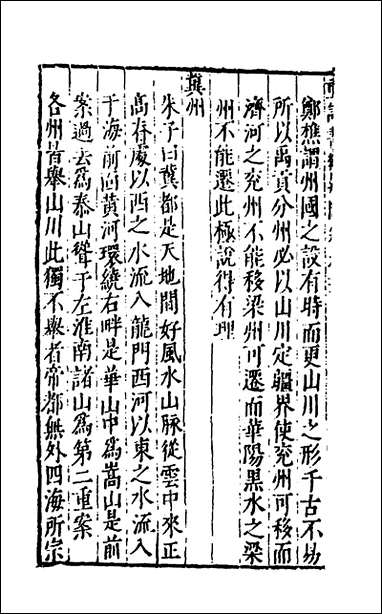 鄭樵謂州國之設有時而更山川之形千古不易
所以禹貢分州必以山川定疆界使兖州可移而
濟河之兖州不能移梁州可遷而華陽黒水之梁
州不能遷此極說得有理
冀州
朱子曰冀都是天地間好風水山脉從雲中來正
高脊處以西之水流入龍門西河以東之水流入
于海前面黄河環繞右畔是華山中為嵩山是前
案過去為泰山聳于左淮南諸山為第二重案
各州皆舉山川此獨不舉者帝都無外四海所宗